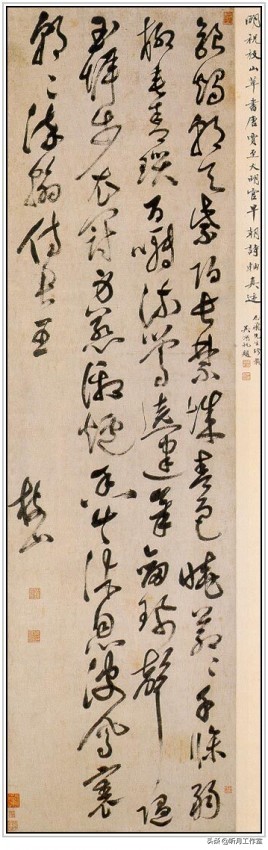 明祝枝山草書唐賈至大明宮早朝詩軸真迹
先生珍藏
銀燭朝天紫陌長禁城春色曉蒼〻千條弱
柳垂青瑣百囀流鶯遶建章劍珮聲隨
玉墀步衣冠身惹御爐香共沐恩波鳳裏
朝〻染翰侍君王
枝山
头条 @听月工作室